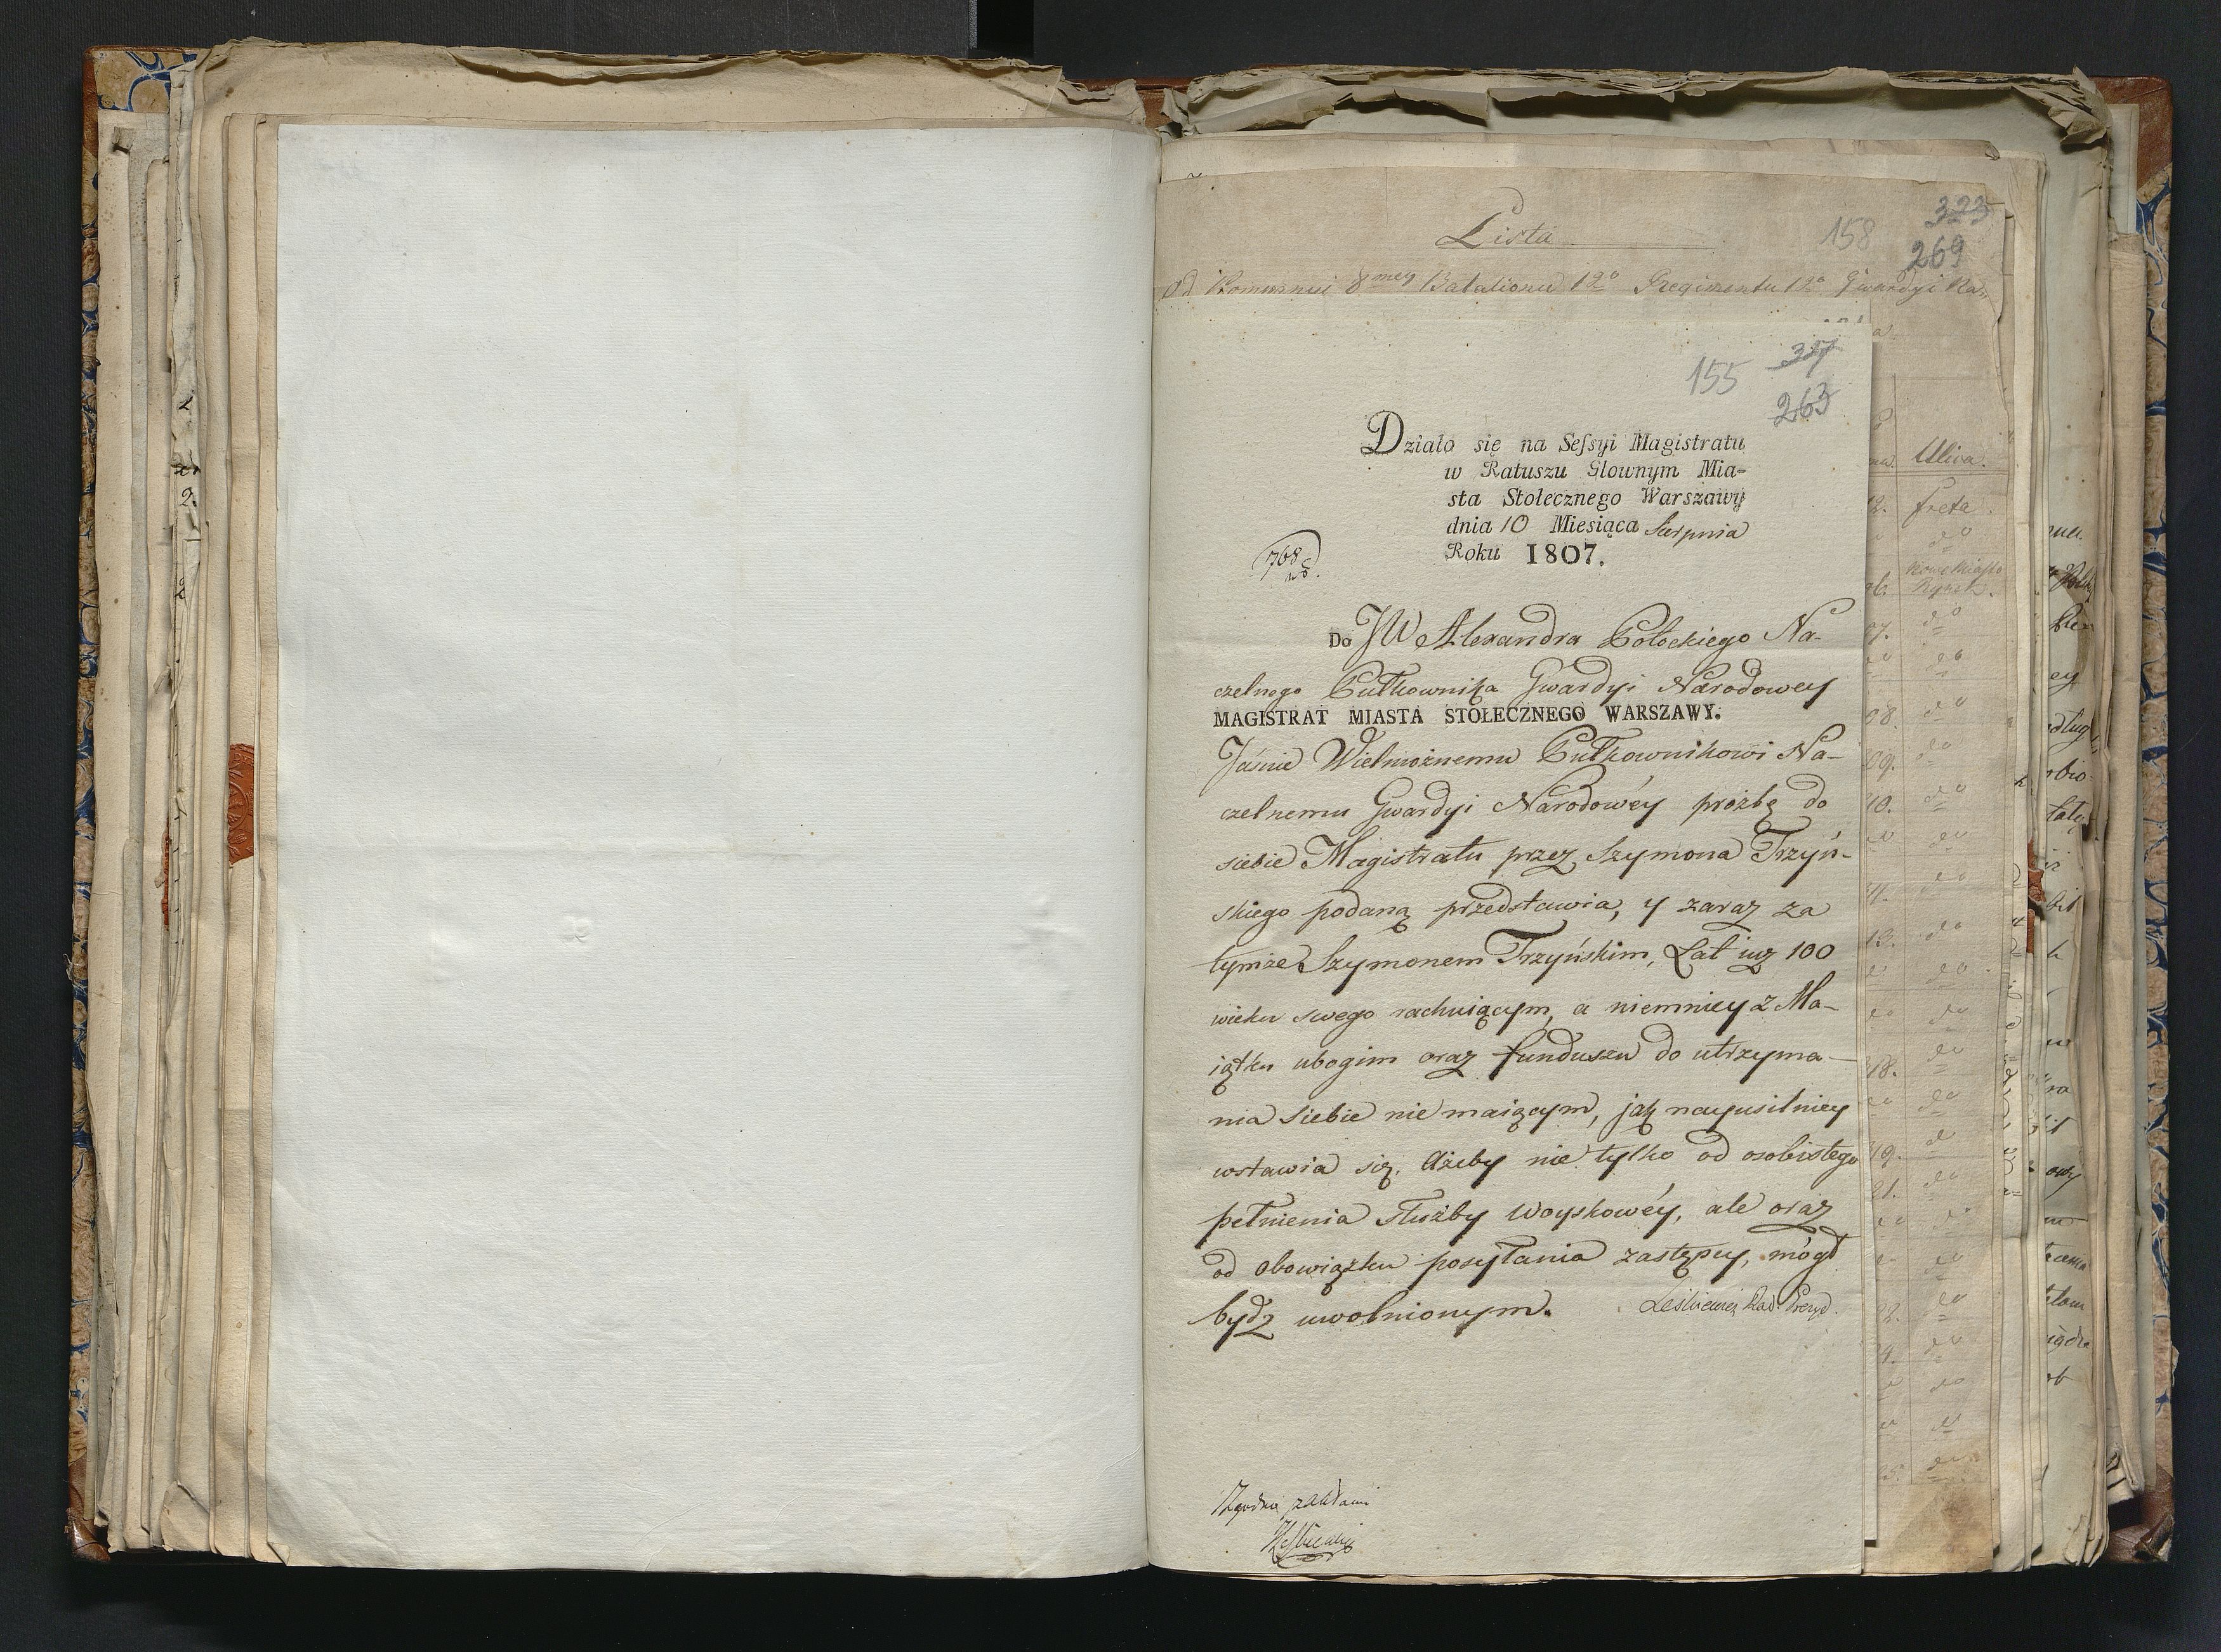 Lista
158
323
269
Od Kompanii 8mey Batalionu 1go Regimentu 1go Gwardyi Na
155
317
263
Działo się na Seſsyi Magistratu
w Ratuszu Głownym Mia-
sta Stołecznego Warszawy
dnia 10 Miesiąca Sierpnia
Roku 1807.
768
Do JW Alexandra Potockiego Na-
czelnego Pułkownika Gwardyi Narodowey
MAGISTRAT MIASTA STOŁECZNEGO WARSZAWY.
Jaśnie Wielmożnemu Pułkownikowi Na-
czelnemu Gwardyi Narodowéy prożbę do
siebie Magistratu przez Szymona Trzyń-
skiego podaną przedstawia, y zaraz za
tymże Szymonem Trzyńskim, Lat iuż 100
wieku swego rachuiącym, a niemniey z Ma-
iątku ubogim oraz funduszu do utrzyma-
nia siebie nie maiącym, jak nayusilniey
wstawia się. Ażeby nie tylko od osobistego
pełnienia służby woyskowéy, ale oraz
od obowiązku posyłania zastępcy, mógł
bydz uwolnionym.
Leśkiewicz Rad. Prezyd.
Zgodno z aktami
Ulica.
freta
do
Nowe Miasto
Rynek.
do